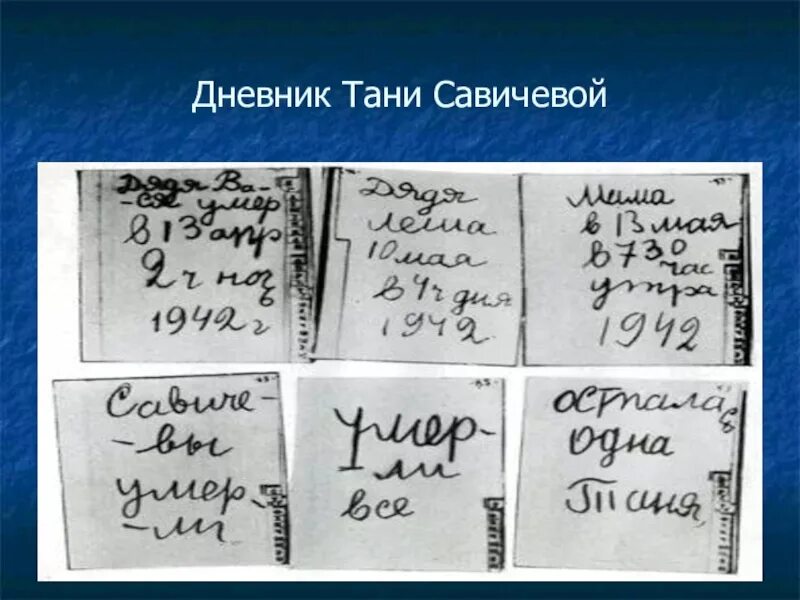 Дневник Тани Савичевой
Дядя Ва-
-ся умер
в 13 апр
2 ч ноч
1942 г
Дядя
Леша
10 мая
в 4 ч дня
1942
Мама
в 13 мая
в 7 30
час
утра
1942
Савиче-
-вы
умер-
-ли
умер-
ли
все
Остала
сь
одна
Таня